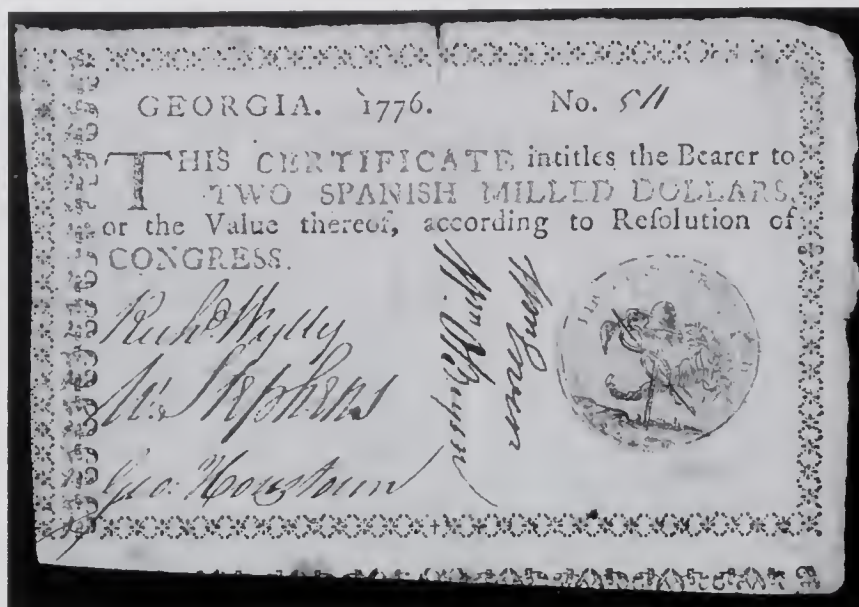 GEORGIA. 1776. No. 511
THIS CERTIFICATE intitles the Bearer to
TWO SPANISH MILLED DOLLARS,
or the Value thereof, according to Reſolution of
CONGRESS.
Richd Wylly
Wm. Stephens
Geo. Houstoun